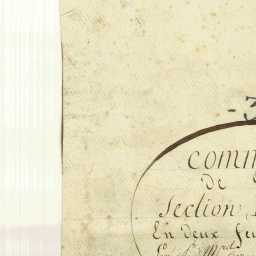 - 3
comm
de
Section
En deux feu